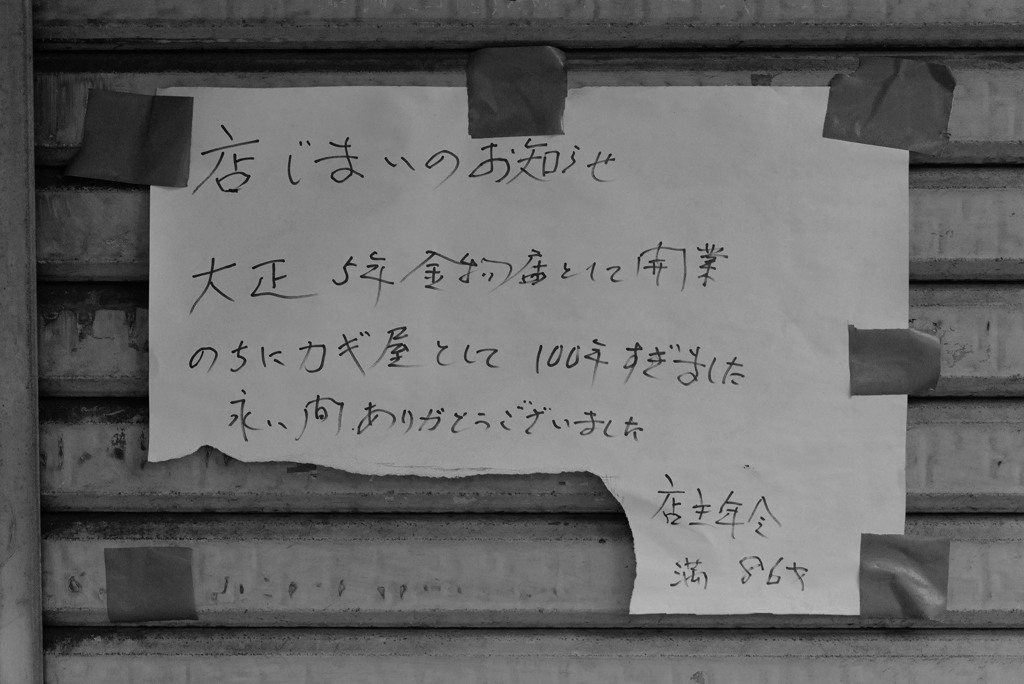 店じまいのお知らせ
大正 5年 金物店として開業
のちにカギ屋として 100年すぎました
永い間 ありがとうございました
店主年令
満 86才